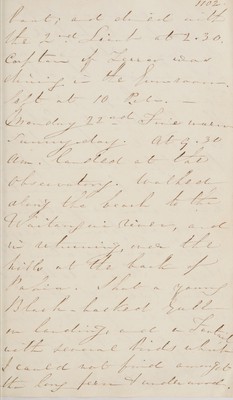 1102
boat; and dined with
the 2nd Lieut at 2.30.
Captain of
dining in the Gunroom.
left at 10 P.M. —
Monday 22nd Fine warm
Sunny day. At 9.30
am. landed at the
Observatory. Walked
along the beach to the
river, and
in returning, over the
hills at the back of
Shot a young
Black-backed Gull
on landing, and a
with several birds which
I could not find amongst
the long fern & underwood.